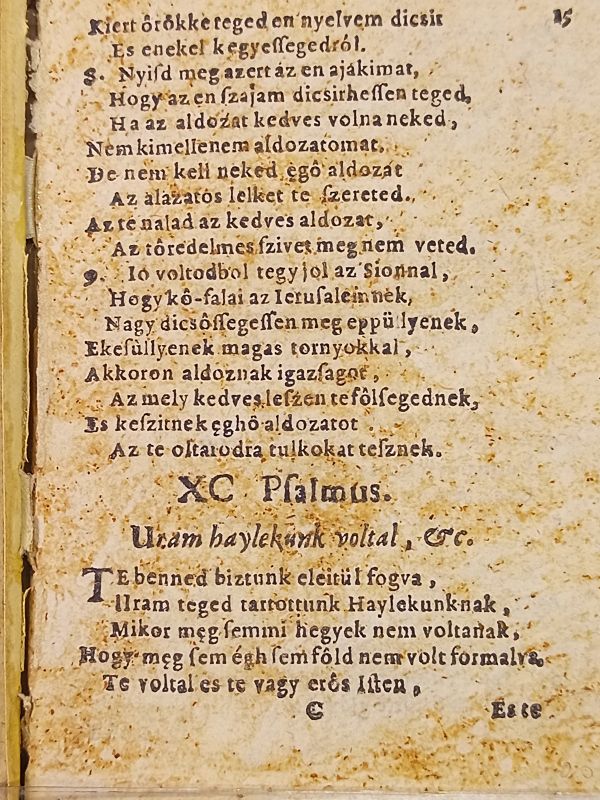 Kiert ôrôkke teged en nyelvem dicsit 15
Es enekel kegyeſſegedról.
8. Nyiſd meg azert áz en ajakimat,
Hogy az en ſzajam dicsirheſſen teged,
Ha az aldozat kedves volna neked,
Nem kimellenem aldozatomat,
De nem kell neked ęgô aldozat
Az alazatos lelket te ſzereted.
Az te nalad az kedves aldozat,
Az tôredelmes ſzivet meg nem veted.
9. Io voltodbol tegy jol az Sionnal,
Hogy kô-falai az Ieruſalemnek,
Nagy dicsôſſegeſſen meg eppüllyenek,
Ekeſüllyenek magas tornyokkal,
Akkoron aldoznak igazſagot,
Az mely kedves leſzen te fôlſegednek,
Es keſzitnek ęghô aldozatot
Az te oltarodra tulkokat teſznek.
XC Pſalmus.
Uram haylekunk voltal, &c.
TE benned biztunk eleitül fogva,
Uram teged tartottunk Haylekunknak,
Mikor męg ſemmi hegyek nem voltanak,
Hogy męg ſem égh ſem fôld nem volt formalva.
Te voltal es te vagy erôs Iſten,
C Es te